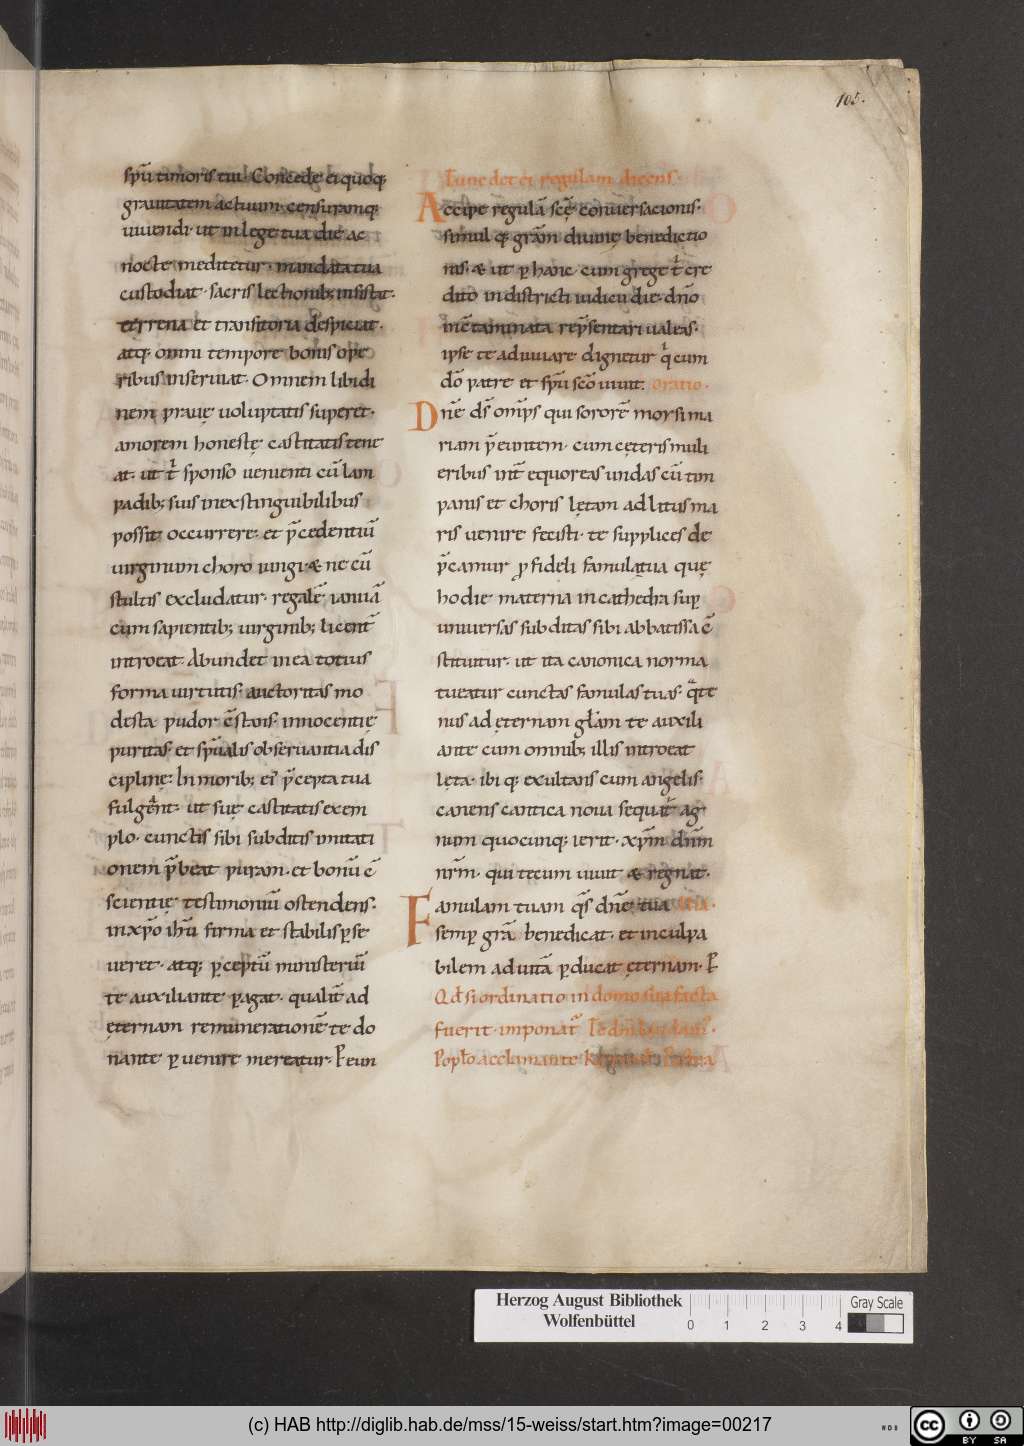 105.
sp̄u timoris tui. Concede ei quoq;
grauitatem actuum. censuramq;
uiuendi. ut in lege tua die ac
nocte meditetur. mandata tua
custodiat. sacris lectionib; insistat.
terrena et transitoria despiciat.
atq; omni tempore bonis ope
ribus inseruiat. Omnem libidi
nem prauę uoluptatis superet.
amorem honestę castitatis tene
at. ut t͛ sponso uenienti cū lam
padib; suis inexstinguibilibus
possit occurrere. et p̄cedentiū
uirginum choro iungi. & ne cū
stultis excludatur. regalē ianuā
cum sapientib; uirginib; licent̄
introeat. Abundet in ea totius
forma uirtutis. auctoritas mo
desta. pudor c̄stans. innocentię
puritas. et sp̄ualis obseruantia dis
ciplinę. In morib; ei᾽ p̄cepta tua
fulgent. ut suę castitatis exem
plo. cunctis sibi subditis imitati
onem p̄beat puram. et bonū c̄
scientię testimoniū ostendens.
in xp̄o ih̄u firma et stabilis ꝑse
ueret. atq; ꝑceptū ministeriū
te auxiliante ꝑagat. qualit̄ ad
ęternam remunerationē te do
nante ꝑuenire mereatur. P eun
Tunc det ei regulam dicens.
Accipe regulā scę̄ conuersacionis.
simul q; grām diuinę benedictio
nis. & ut ꝑ hanc cum grege t͛ cre
dito in districti iudicii die. dn̄o
inc̄taminata rep̄sentari ualeas.
ipse te adiuuare dignetur q͛ cum
dō patre et sp̄u scō uiuit. oratio.
Dn̄e ds̄ om̄ps qui sororē morsi ma
riam p̄euntem. cum cęteris muli
eribus int̄ equoreas undas cū tim
panis et choris lętam ad litus ma
ris uenire fecisti. te supplices de
p̄camur ꝓ fideli famula tua quę
hodie materna in cathedra suꝑ
uniuersas subditas sibi abbatissa c̄
stituitur. ut ita canonica norma
tueatur cunctas famulas tuas. q̄te
nus ad ęternam glām te auxili
ante cum omnib; illis introeat
lęta. ibi q; exultans cum angelis.
canens cantica noua sequat̄ ag
num quocunq; ierit. xp̄m dn̄m
nr̄m. qui tecum uiuit & regnat.
Famulam tuam qs̄ dn̄e tua
semꝑ grā benedicat. et inculpa
bilem ad uitā ꝑducat ęternam. P
Qd̄ si ordinatio in domo sua facta
fuerit. imponat᷑ Te dm̄ laudam᷑.
Poplo acclamante
Herzog August Bibliothek
Wolfenbüttel
0 1 2 3 4
Gray Scale
(c) HAB http://diglib.hab.de/mss/15-weiss/start.htm?image=00217
WDB
cc BY SA